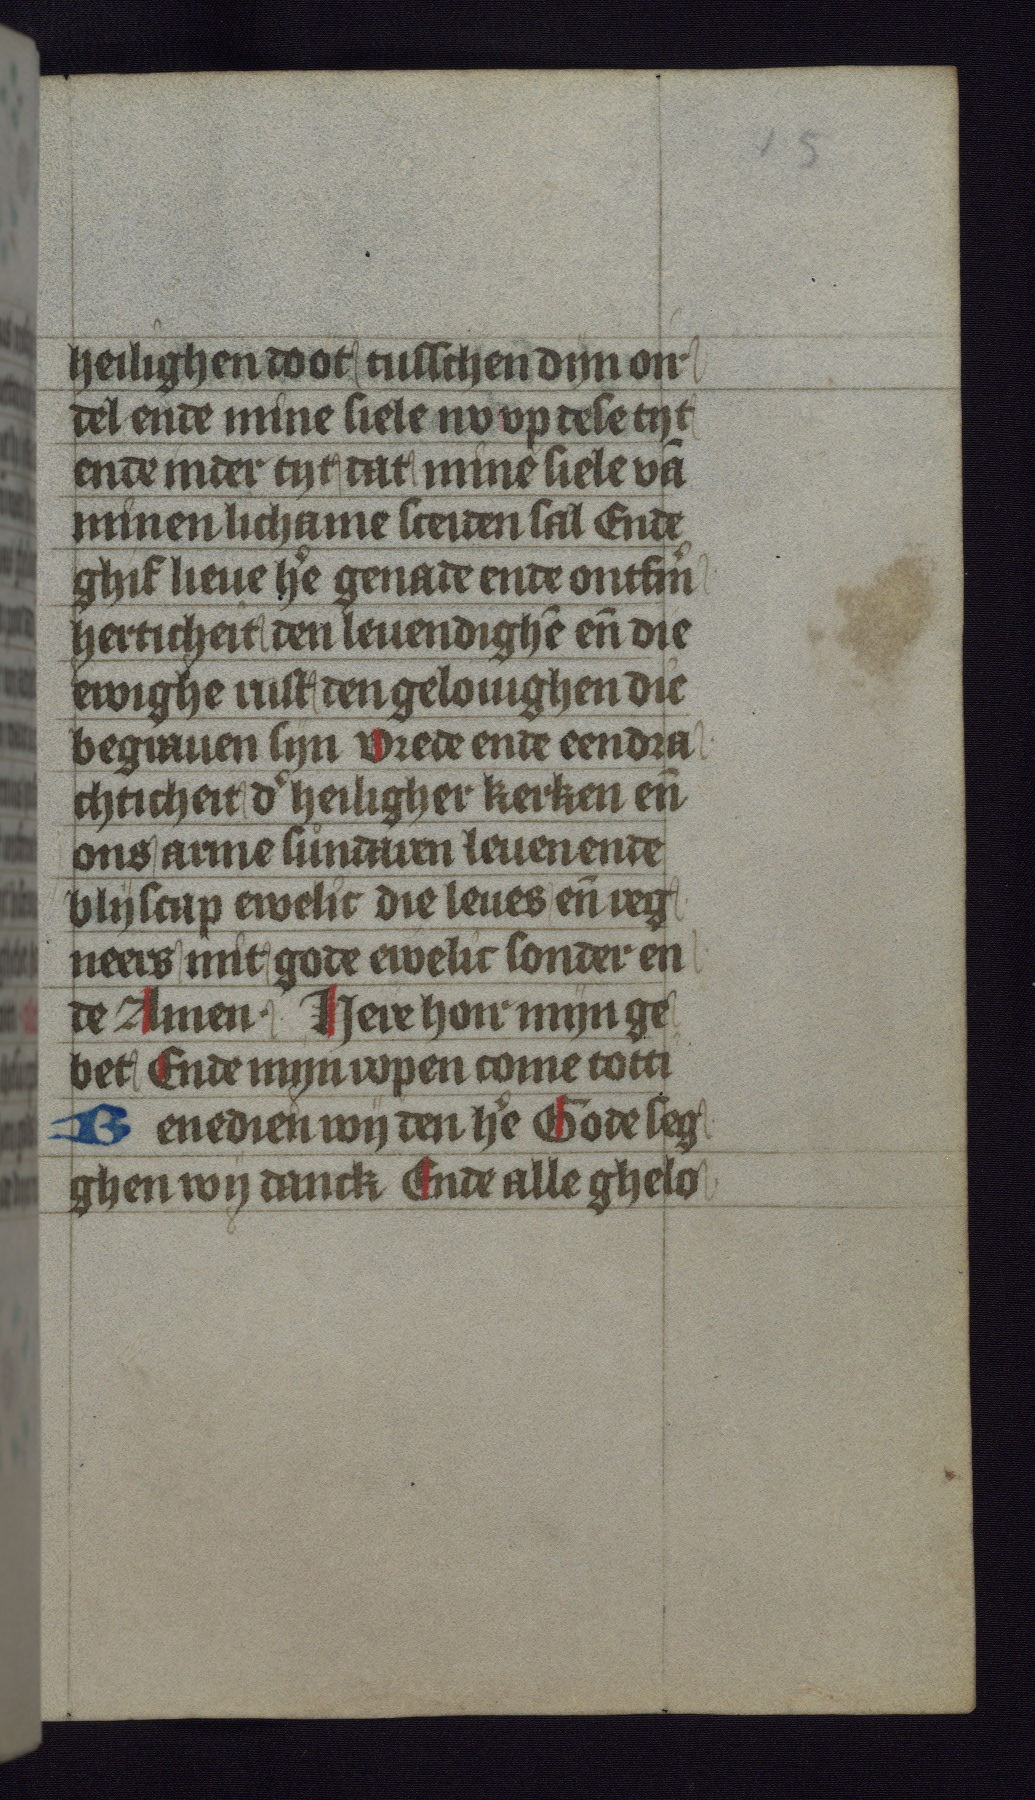 15
heilighen doot tusschen dijn oir
del ende mine siele nv op dese tijt
ende inder tijt dat mine siele vā
minen lichame sceiden sal Ende
ghif lieue h̊e genade ende ontfm̊
herticheit den leuendighē en̄ die
ewighe rust den gelouighen die
begrauen sijn Vrede ende eendra
chticheit d̊ heiligher kerken en̄
ons arme sundaren leuen ende
blijscap ewelic die leues en̄ reg
neers mit gode ewelic sonder en
de Amen · Here hoir mijn ge
bet Ende mijn ropen come totti
Benedien wij den h̊e Gode seg
ghen wij danck Ende alle ghelo